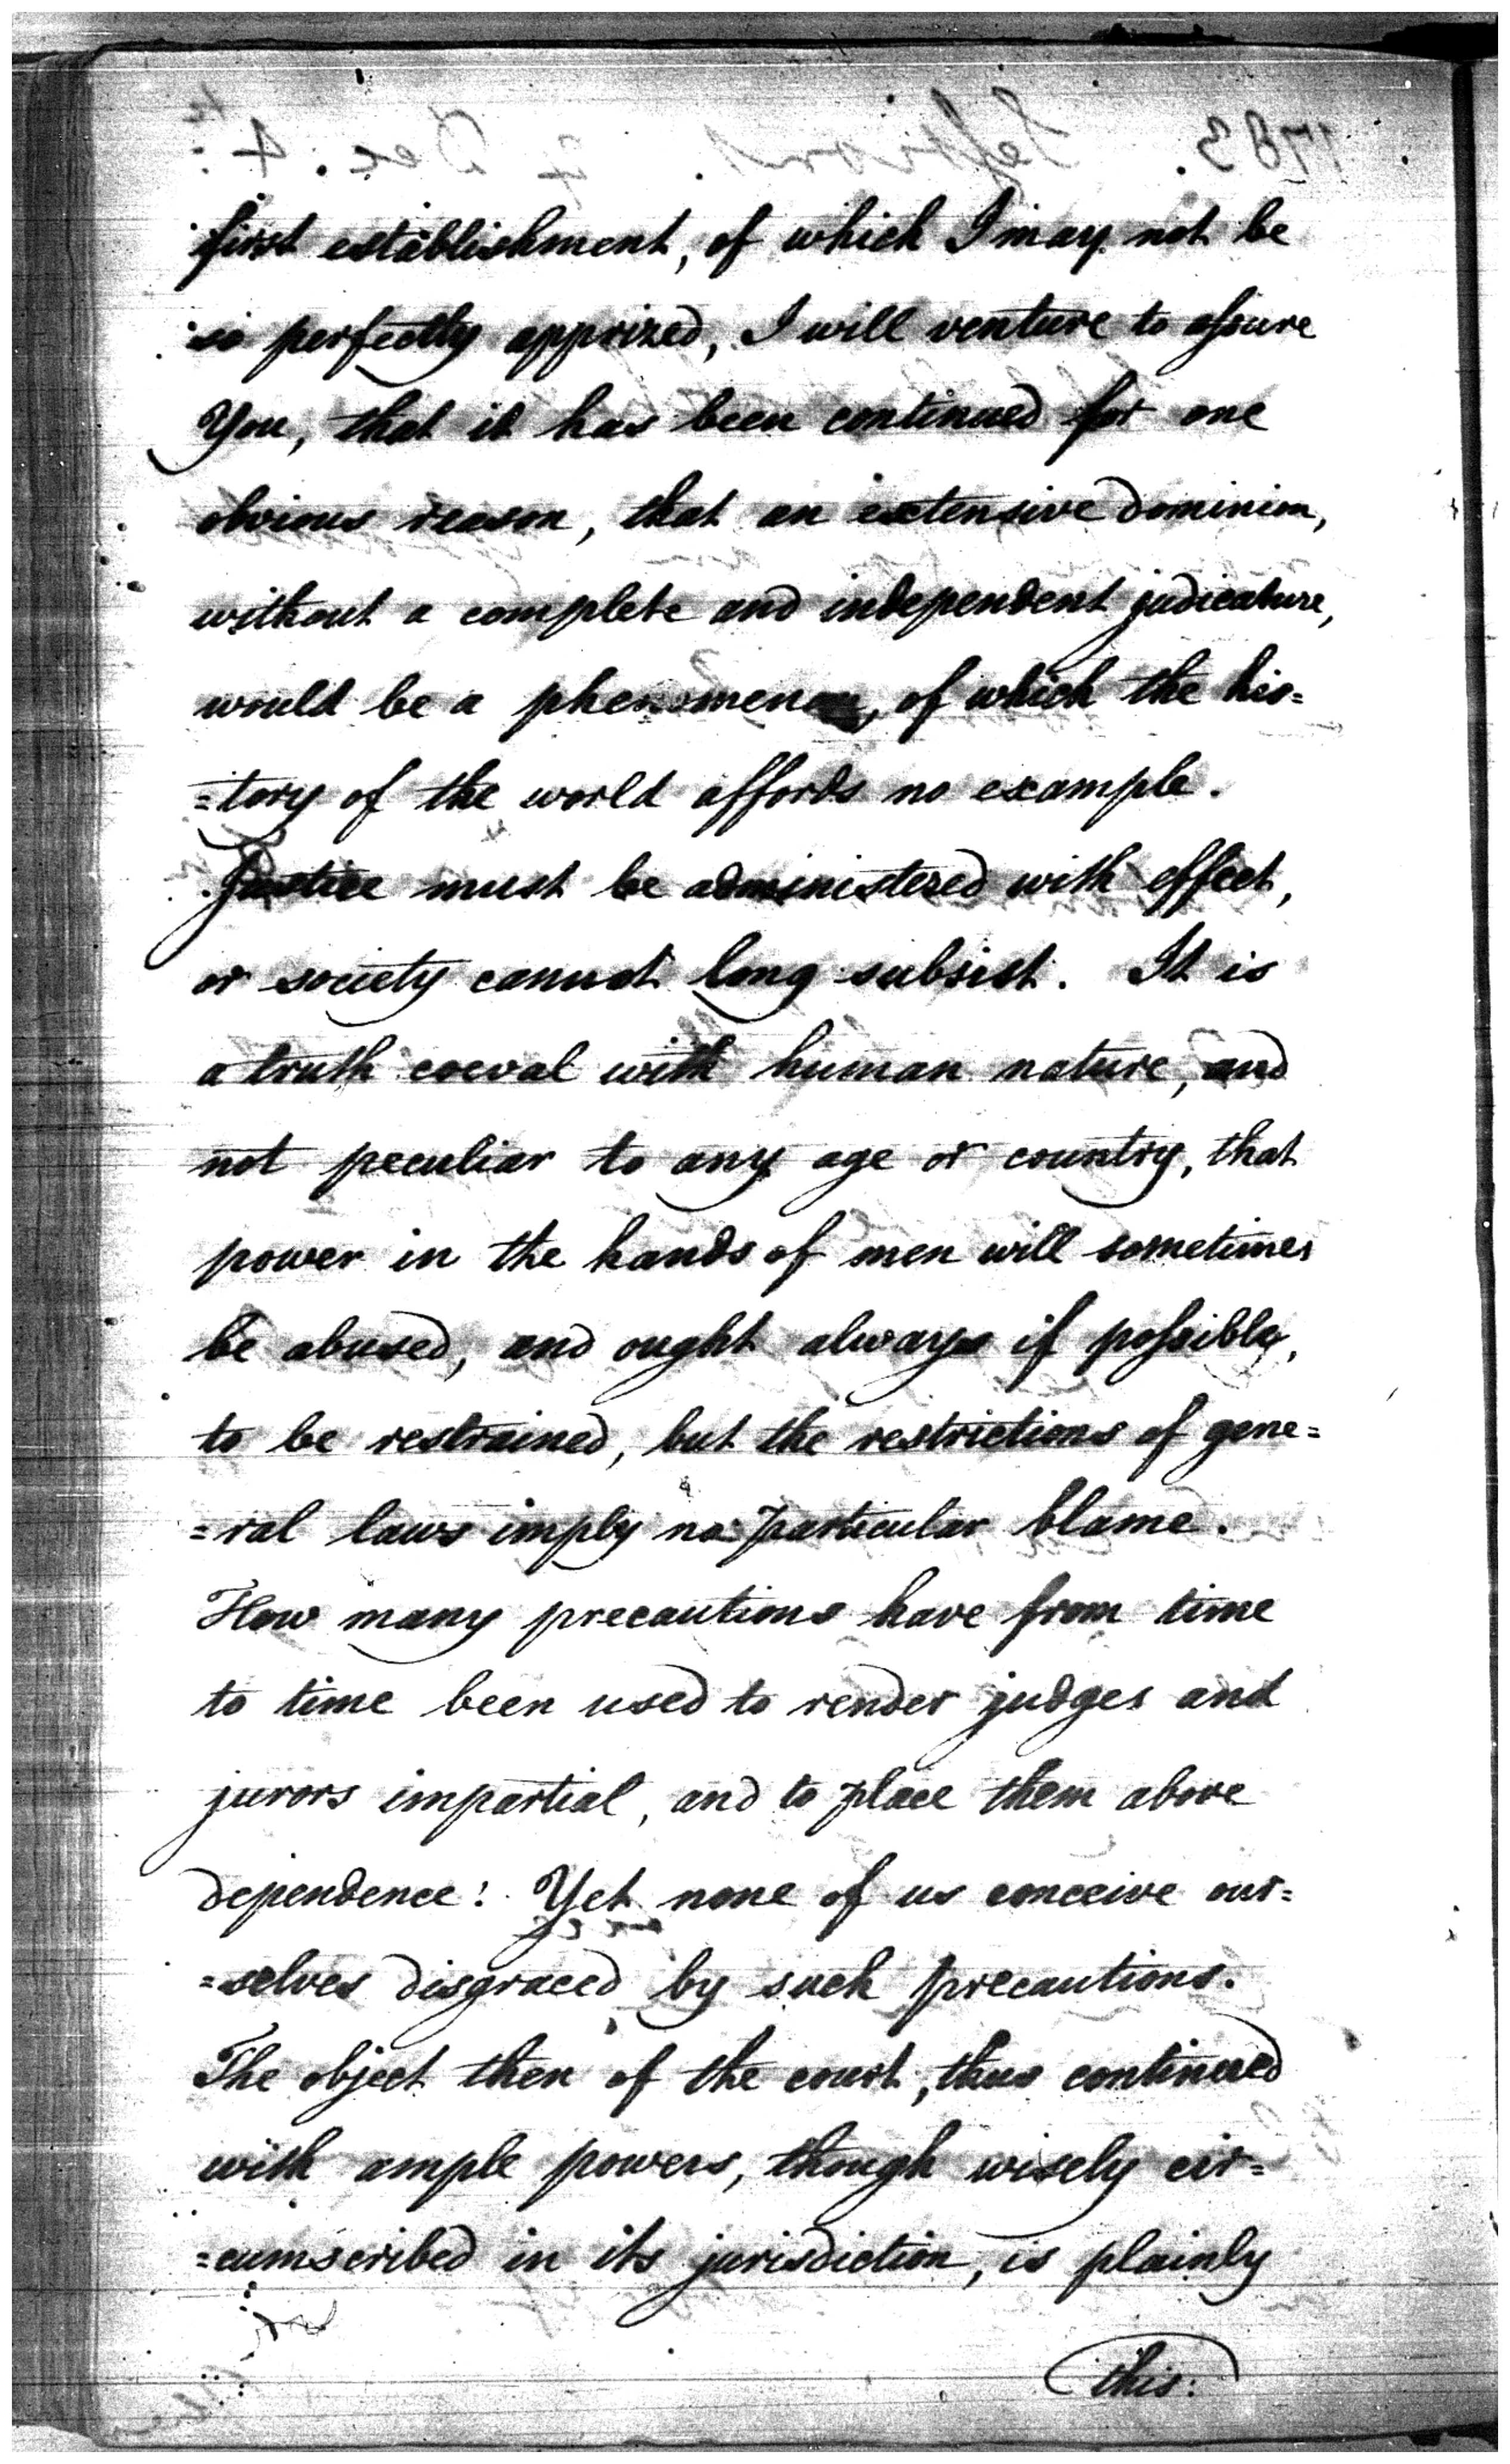 first establishment, of which I may not be
so perfectly apprized, I will venture to aſsure
You, that it has been continued for one
obvious reason, that an extensive dominion,
without a complete and independent judicature,
would be a phenomenon, of which the his=
=tory of the world affords no example.
Justice must be administered with effect,
or society cannot long subsist. It is
a truth coeval with human nature, and
not peculiar to any age or country, that
power in the hands of men will sometimes
be abused, and ought always if poſsible,
to be restrained, but the restrictions of gene=
=ral laws imply no particular blame.
How many precautions have from time
to time been used to render judges and
jurors impartial, and to place them above
dependence! Yet none of us conceive our=
=selves disgraced by such precautions.
The object then of the court, thus continued
with ample powers, though wisely cir=
=cumscribed in its jurisdiction, is plainly
this: